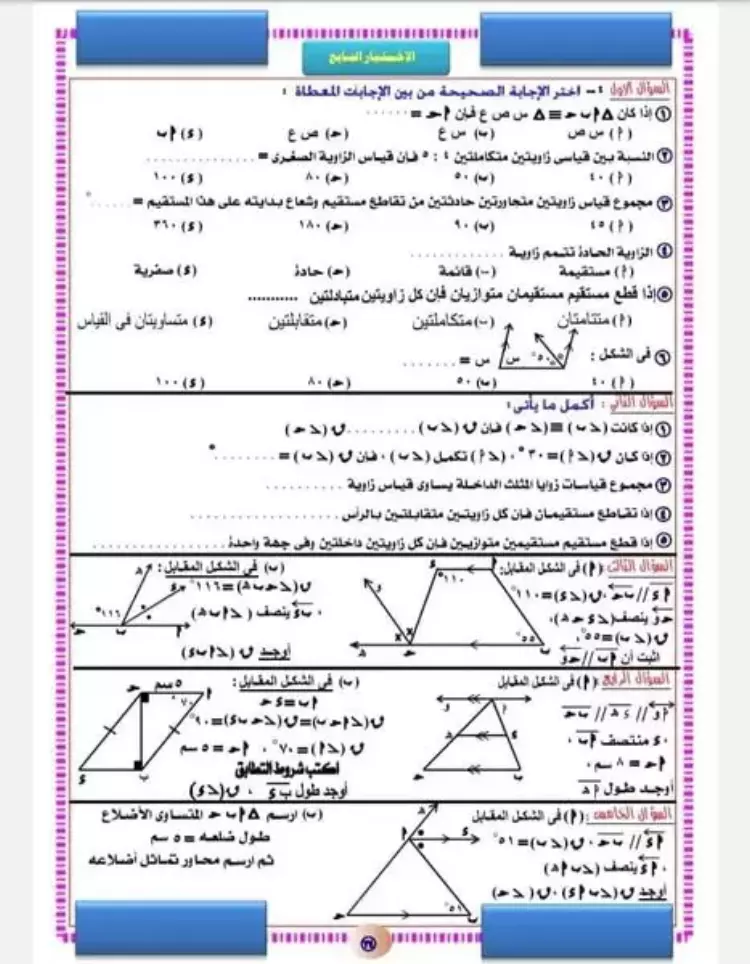 الاختبار السابع
السؤال الأول : ٤- اختر الإجابة الصحيحة من بين الإجابات المعطاة :
① إذا كان △ ٢ ب حـ ≡ △ س ص ع فإن ٢ حـ = ......
(٢) س ص (ب) س ع (حـ) ص ع (٤) ٢ ب
② النسبة بين قياسى زاويتين متكاملتين ٤ : ٥ فإن قياس الزاوية الصغرى = ..............
(٢) ٤٠ (ب) ٥٠ (حـ) ٨٠ (٤) ١٠٠
③ مجموع قياس زاويتين متجاورتين حادثتين من تقاطع مستقيم وشعاع بدايته على هذا المستقيم = ......°
(٢) ٤٥ (ب) ٩٠ (حـ) ١٨٠ (٤) ٣٦٠
④ الزاوية الحادة تتمم زاوية ..............
(٢) مستقيمة (ب) قائمة (حـ) حادة (٤) صفرية
⑤ إذا قطع مستقيم مستقيمان متوازيان فإن كل زاويتين متبادلتين ...........
(٢) متتامتان (ب) متكاملتين (حـ) متقابلتين (٤) متساويتان فى القياس
⑥ فى الشكل : س ٥٠° س = .......
(٢) ٤٠ (ب) ٥٠ (حـ) ٨٠ (٤) ١٠٠
السؤال الثاني : أكمل ما يأتى :
① إذا كانت (∠ب) ≡ (∠حـ) فإن ق (∠ب) ......... ق (∠حـ)
② إذا كان ق (∠٢) = ٣٠° ، (∠٢) تكمل (∠ب) ، فإن ق (∠ب) = ........°
③ مجموع قياسات زوايا المثلث الداخلة يساوى قياس زاوية ...........
④ إذا تقاطع مستقيمان فإن كل زاويتين متقابلتين بالرأس ..................
⑤ إذا قطع مستقيم مستقيمين متوازيين فإن كل زاويتين داخلتين وفى جهة واحدة ..............
السؤال الثالث : (٢) فى الشكل المقابل :
٢ ٤ // ب حـ ، ق (∠٤) = ١١٠°
حـ و ينصف (∠ ٤ حـ هـ) ،
ق (∠ب) = ٥٥° ،
اثبت أن ٢ ب // حـ و
و ٤ ١١٠° ٥٥° x x هـ حـ ب
(ب) فى الشكل المقابل :
ق (∠ حـ ب هـ) = ١١٦°
، ب ٤ ينصف (∠ ٢ ب هـ)
أوجد ق (∠ ٢ ب ٤)
هـ ٤ ١١٦° حـ ب ٢
السؤال الرابع : (٢) فى الشكل المقابل
٢ و // ٤ هـ // ب حـ
، ٤ منتصف ٢ ب ،
٢ حـ = ٨ سم ،
أوجد طول ٢ هـ
و ٢ هـ ٤ حـ ب
(ب) فى الشكل المقابل :
٢ ب = ٤ حـ
ق (∠ ٢ حـ ب) = ق (∠ حـ ب ٤) = ٩٠°
ق (∠٢) = ٧٠° ، ٢ حـ = ٥ سم
أكتب شروط التطابق
أوجد طول ب ٤ ، ق (∠٤)
حـ ٥ سم ٢ ٧٠° ٤ ب
السؤال الخامس : (٢) فى الشكل المقابل
٢ ٤ // ب حـ ، ق (∠ب) = ٥١°
، ٢ ٤ ينصف (∠ ب ٢ هـ)
أوجد ق (∠ ب ٢ ٤) ، ق (∠ حـ)
هـ ٢ ٤ حـ ٥١° ب
(ب) ارسم △ ٢ ب حـ المتساوى الأضلاع
طول ضلعه = ٥ سم
ثم ارسم محاور تماثل أضلاعه